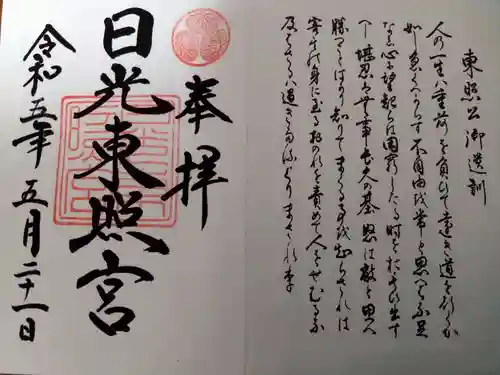 東照公御遺訓
人の一生ハ重荷を負ひて遠き道を行くが
如し急くへからす不自由を常と思へハ不足
なし心に望起らは困窮したる時をおもひ出す
へし堪忍ハ無事長久の基怒は敵と思へ
勝つことはかり知りてまくる事を知らされは
害其の身に至るおのれを責めて人をせむるな
及はさるハ過きたるよりまされり
奉拝
日光東照宮
令和五年五月二十一日